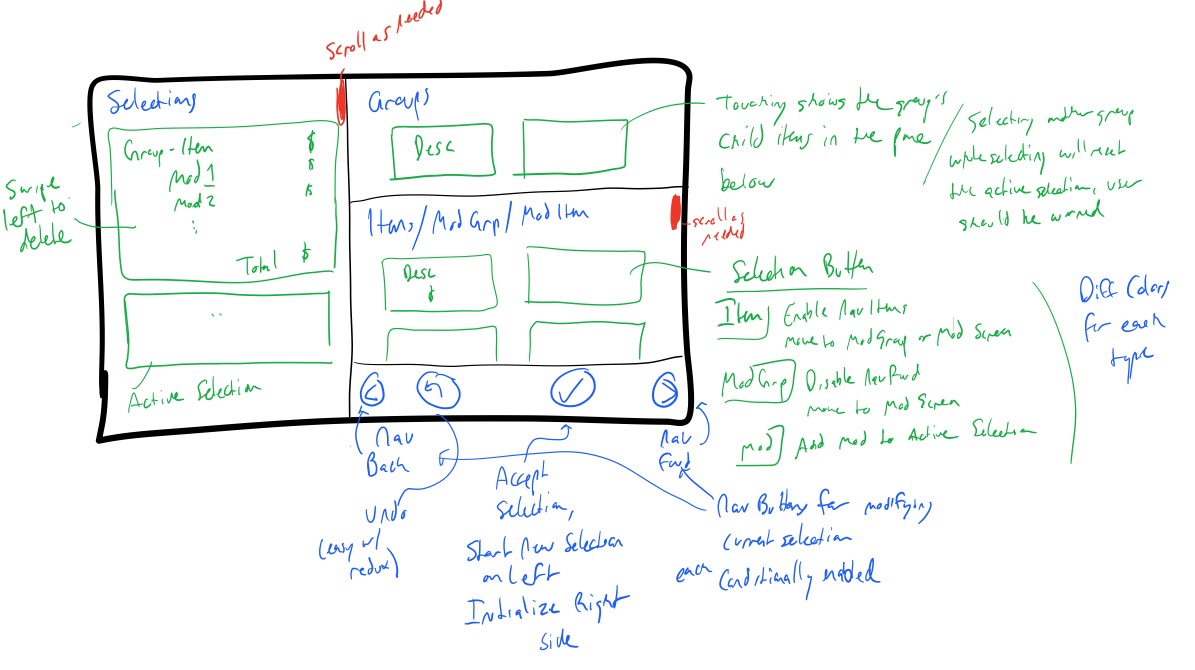 Scroll as needed
Selections
Group - Item $
Mod 1 $
Mod 2 $
Total $
Swipe
left to
delete
Active Selection
Groups
Desc
Items/Mod Grp/Mod Item
Desc
$
scroll as
needed
Touching shows the group's
child items in the pane
below
Selecting another group
while selecting will reset
the active selection, user
should be warned
Selection Button
Item Enable Nav Items
move to Mod Group or Mod Screen
Mod Grp Disable Nav Fwd
move to Mod Screen
Mod Add Mod to Active Selection
Diff Colors
for each
type
Nav
Back
Undo
(easy w/
redux)
Accept
Selection,
Start New Selection
on Left
Initialize Right
side
Nav
Fwd
Nav Buttons for modifying
current selection
each Conditionally enabled